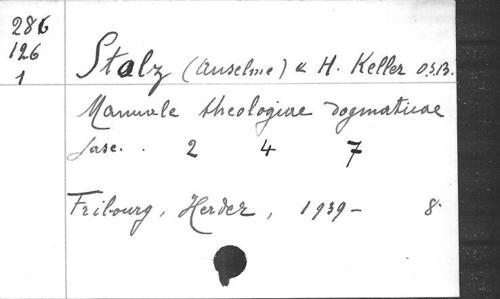 286
126
1
Stolz (Anselme) & H. Keller O.S.B.
Manuale theologiae dogmaticae
fasc. . 2 4 7
Fribourg, Herder, 1939- 8.